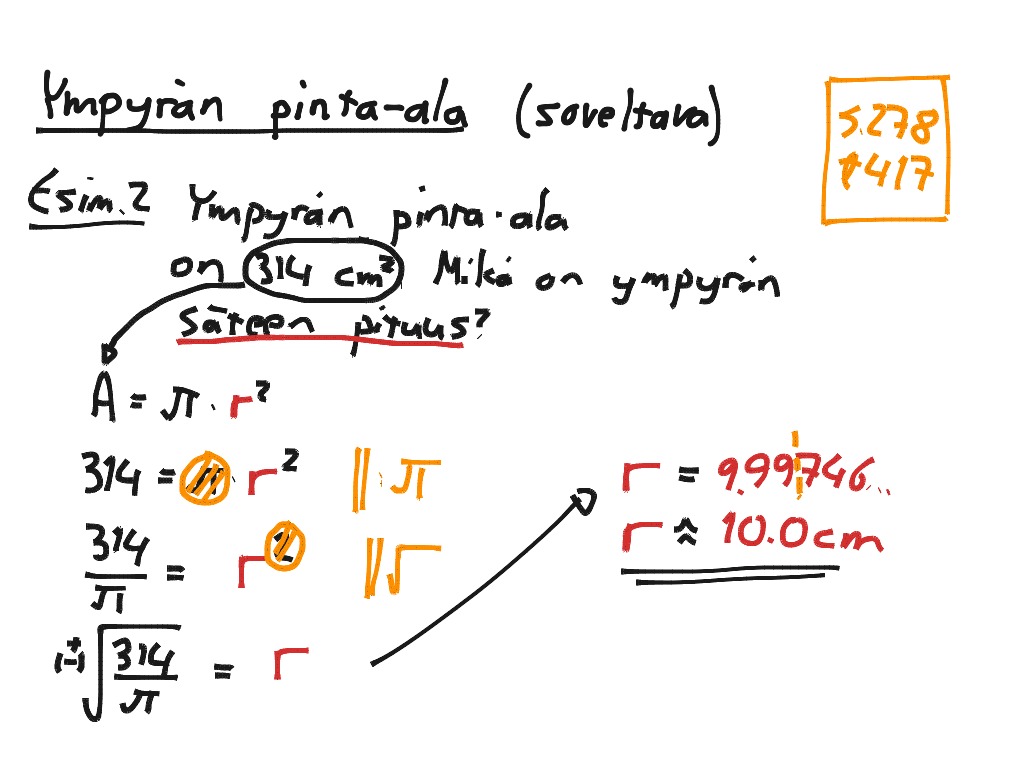 Ympyrän pinta-ala (soveltava)
5.278
t417
Esim. 2 Ympyrän pinta-ala
on 314 cm² Mikä on ympyrän
säteen pituus?
A = π · r²
314 = π · r² || π
314/π = r² || √
(-)+ √(314/π) = r
r = 9.99746...
r ≈ 10.0 cm